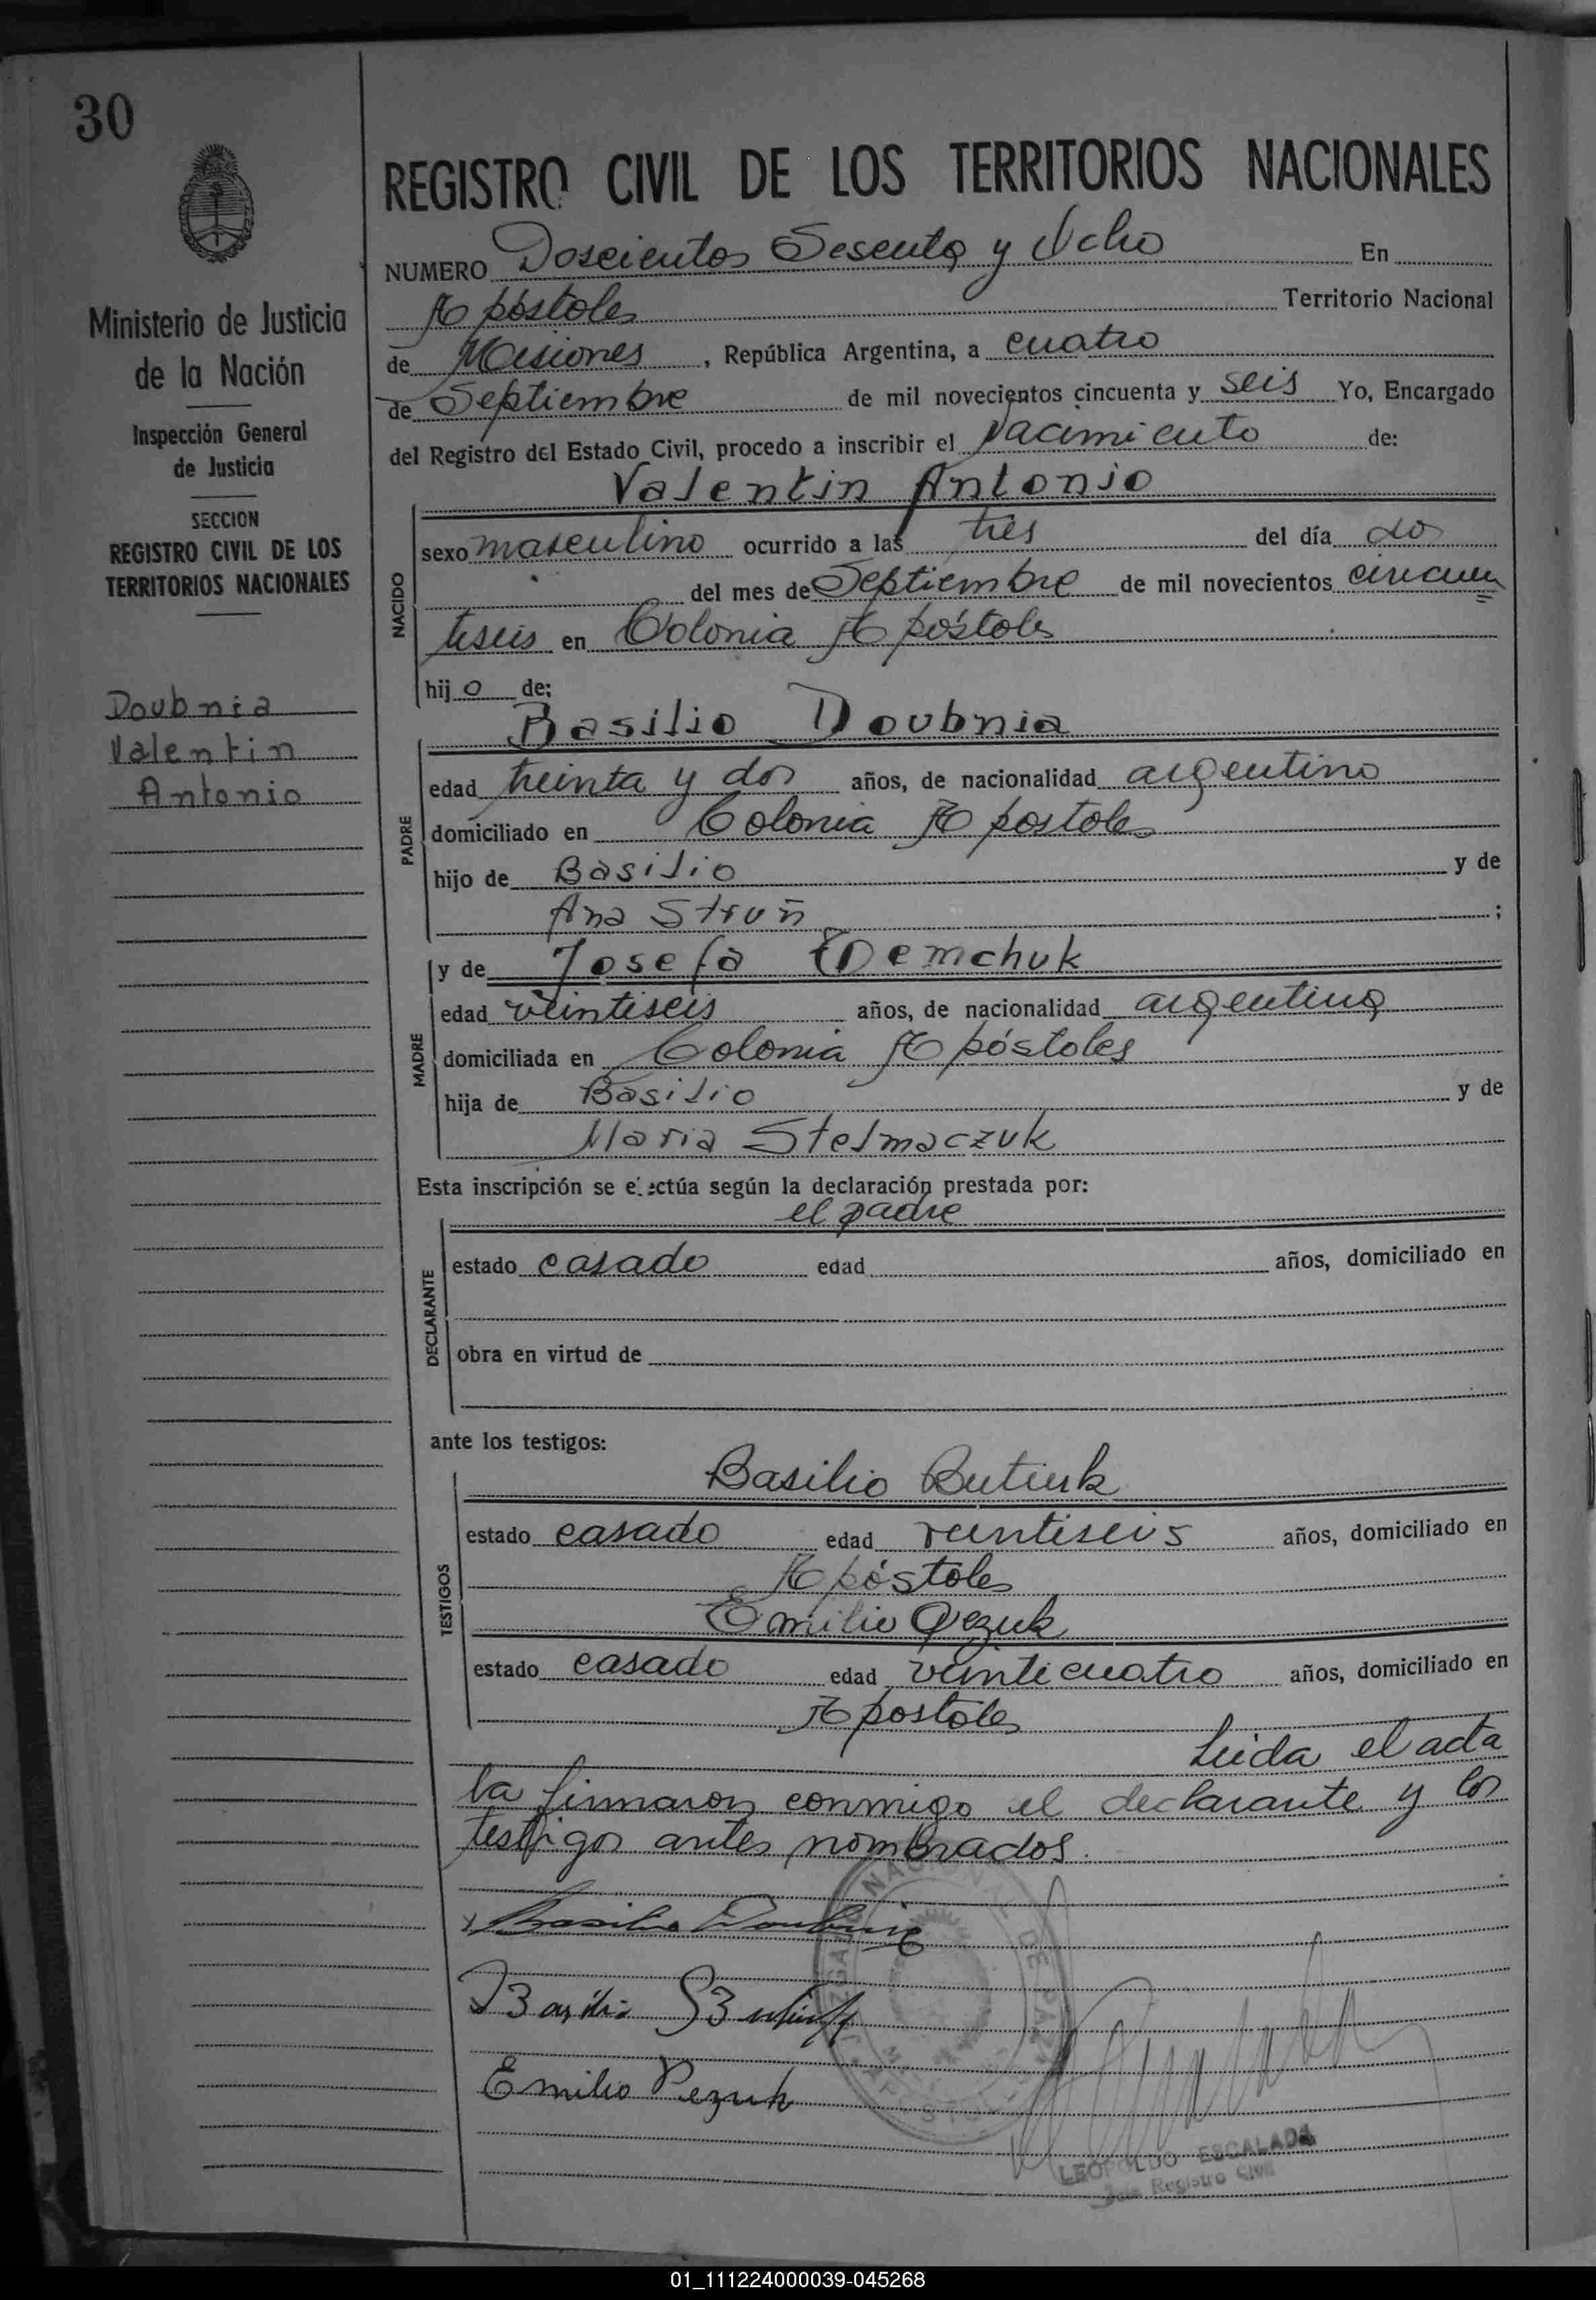 30
REGISTRO CIVIL DE LOS TERRITORIOS NACIONALES
Ministerio de Justicia
de la Nación
Inspección General
de Justicia
SECCION
REGISTRO CIVIL DE LOS
TERRITORIOS NACIONALES
Doubnia
Valentin
Antonio
NUMERO Doscientos Sesenta y Ocho En
Apóstoles Territorio Nacional
de Misiones, República Argentina, a cuatro
de Septiembre de mil novecientos cincuenta y seis Yo, Encargado
del Registro del Estado Civil, procedo a inscribir el Nacimiento de:
Valentin Antonio
NACIDO
sexo masculino ocurrido a las tres del día dos
del mes de Septiembre de mil novecientos cincuen
tiseis en Colonia Apóstoles
hijo de:
Basilio Doubnia
PADRE
edad treinta y dos años, de nacionalidad argentino
domiciliado en Colonia Apostoles
hijo de Basilio y de
Ana Struñ ;
MADRE
y de Josefa Demchuk
edad veintiseis años, de nacionalidad argentina
domiciliada en Colonia Apóstoles
hija de Basilio y de
Maria Stelmaczuk
Esta inscripción se efectúa según la declaración prestada por:
el padre
DECLARANTE
estado casado edad años, domiciliado en
obra en virtud de
ante los testigos:
TESTIGOS
Basilio Butiuk
estado casado edad veintiseis años, domiciliado en
Apóstoles
Emilio Pezuk
estado casado edad veinticuatro años, domiciliado en
Apostoles
Leida el acta
la firmaron conmigo el declarante y los
testigos antes nombrados.
Basilio Doubnia
Basilio Butiuk
Emilio Pezuk
LEOPOLDO ESCALADA
Jefe Registro Civil
01_111224000039-045268